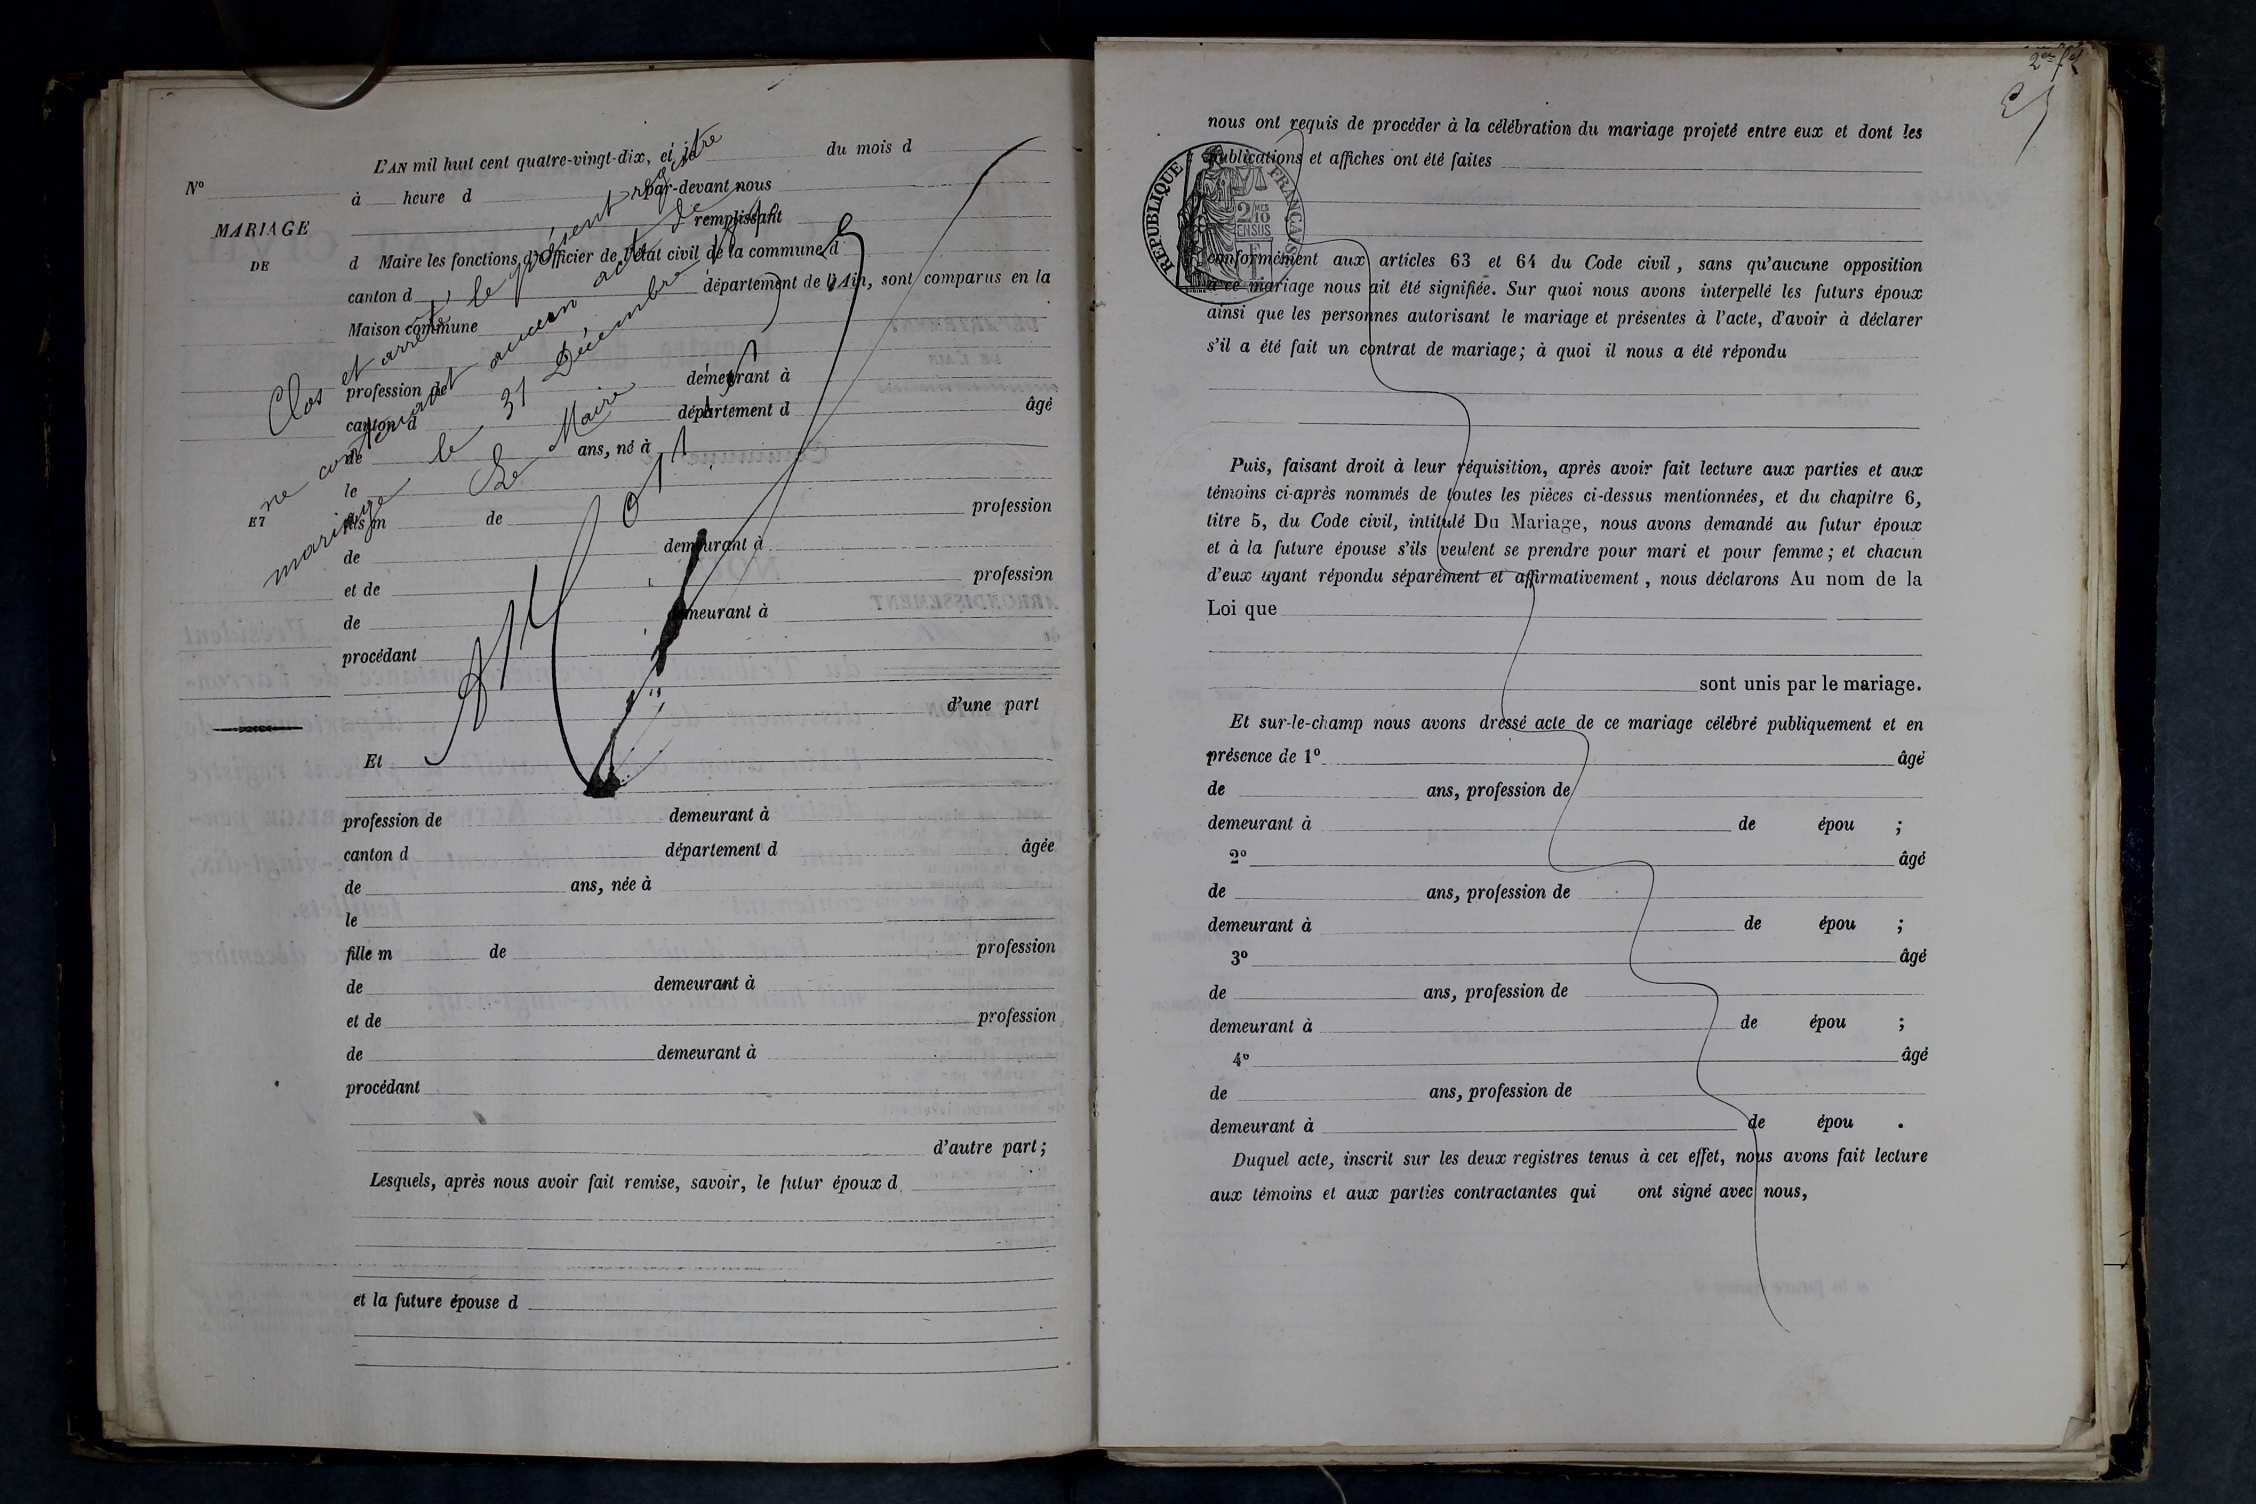 L'AN mil huit cent quatre-vingt-dix, et le du mois d
N° à heure d par-devant nous
MARIAGE remplissant
DE d Maire les fonctions d'Officier de l'état civil de la commune d
canton d département de l'Ain, sont comparus en la
Maison commune
profession de demeurant à
canton d département d âgé
de ans, né à
le
ET fils m de profession
de demeurant à
et de profession
de demeurant à
procédant
d'une part
Et
profession de demeurant à
canton d département d âgée
de ans, née à
le
fille m de profession
de demeurant à
et de profession
de demeurant à
procédant
d'autre part;
Lesquels, après nous avoir fait remise, savoir, le futur époux d
et la future épouse d
Clos et arrêté le présent registre
ne contenant aucun acte de
mariage le 31 Décembre
Le Maire
nous ont requis de procéder à la célébration du mariage projeté entre eux et dont les
publications et affiches ont été faites
RÉPUBLIQUE FRANÇAISE
2 MES
10
EN SUS
conformément aux articles 63 et 64 du Code civil, sans qu'aucune opposition
à ce mariage nous ait été signifiée. Sur quoi nous avons interpellé les futurs époux
ainsi que les personnes autorisant le mariage et présentes à l'acte, d'avoir à déclarer
s'il a été fait un contrat de mariage; à quoi il nous a été répondu
Puis, faisant droit à leur réquisition, après avoir fait lecture aux parties et aux
témoins ci-après nommés de toutes les pièces ci-dessus mentionnées, et du chapitre 6,
titre 5, du Code civil, intitulé Du Mariage, nous avons demandé au futur époux
et à la future épouse s'ils veulent se prendre pour mari et pour femme; et chacun
d'eux ayant répondu séparément et affirmativement, nous déclarons Au nom de la
Loi que
sont unis par le mariage.
Et sur-le-champ nous avons dressé acte de ce mariage célébré publiquement et en
présence de 1° âgé
de ans, profession de
demeurant à de épou ;
2° âgé
de ans, profession de
demeurant à de épou ;
3° âgé
de ans, profession de
demeurant à de épou ;
4° âgé
de ans, profession de
demeurant à de épou .
Duquel acte, inscrit sur les deux registres tenus à cet effet, nous avons fait lecture
aux témoins et aux parties contractantes qui ont signé avec nous,